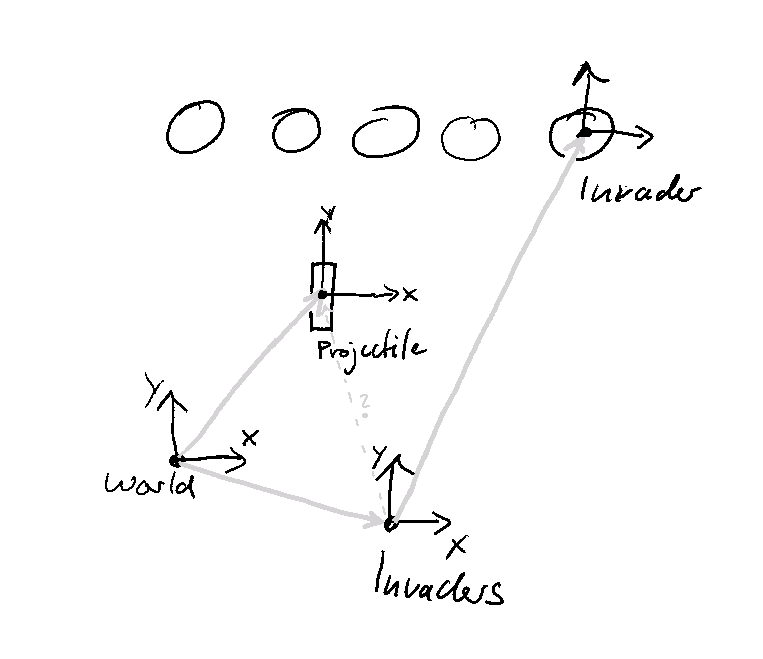 Invader
Y
X
Projectile
?
Y
X
World
Y
X
Invaders